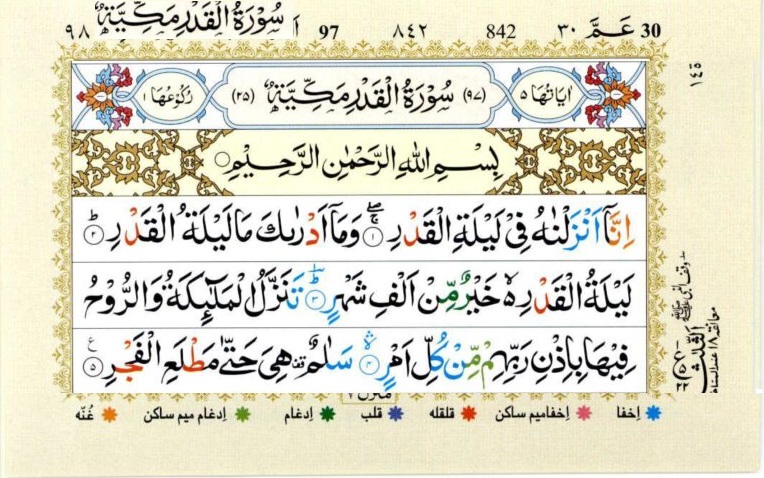 ٩٨ سُوْرَةُ الْقَدْرِ مَكِّيَّةٌ 97 ٨٤٢ 842 ٣٠ عَمَّ 30
١٤٥
اٰیَاتُهَا ٥ (٩٧) سُوْرَةُ الْقَدْرِ مَكِّيَّةٌ (٢٥) رُكُوْعُهَا ١
بِسْمِ اللهِ الرَّحْمٰنِ الرَّحِيْمِ
اِنَّاۤ اَنْزَلْنٰهُ فِيْ لَيْلَةِ الْقَدْرِ ۚۖ ١ وَمَاۤ اَدْرٰىكَ مَا لَيْلَةُ الْقَدْرِ ؕ ٢
لَيْلَةُ الْقَدْرِ ۙ۬ خَيْرٌ مِّنْ اَلْفِ شَهْرٍ ؕ ٣ تَنَزَّلُ الْمَلٰٓئِكَةُ وَالرُّوْحُ
فِيْهَا بِاِذْنِ رَبِّهِمْ مِّنْ كُلِّ اَمْرٍ ۛ ٤ سَلٰمٌ ۛ هِيَ حَتّٰى مَطْلَعِ الْفَجْرِ ع ٥
اِخفا اِخفامیم ساکن قلقله قلب اِدغام اِدغام میم ساکن غُنّه